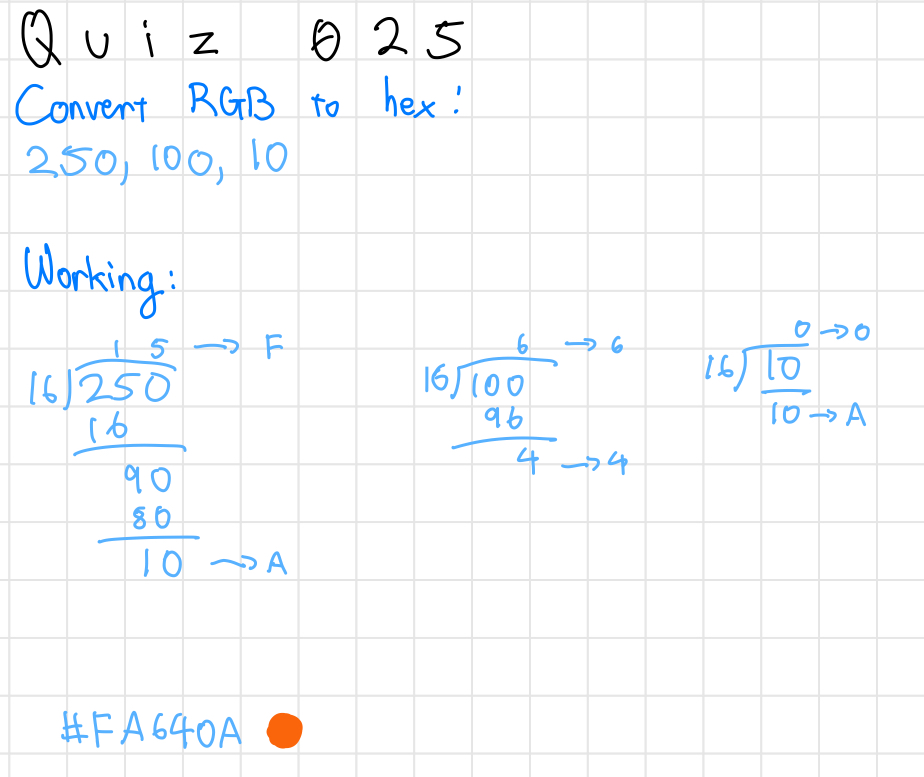 Quiz 025
Convert RGB to hex:
250, 100, 10
Working:
15 → F
16)250
16
90
80
10 → A
6 → 6
16)100
96
4 → 4
0 → 0
16)10
10 → A
#FA640A